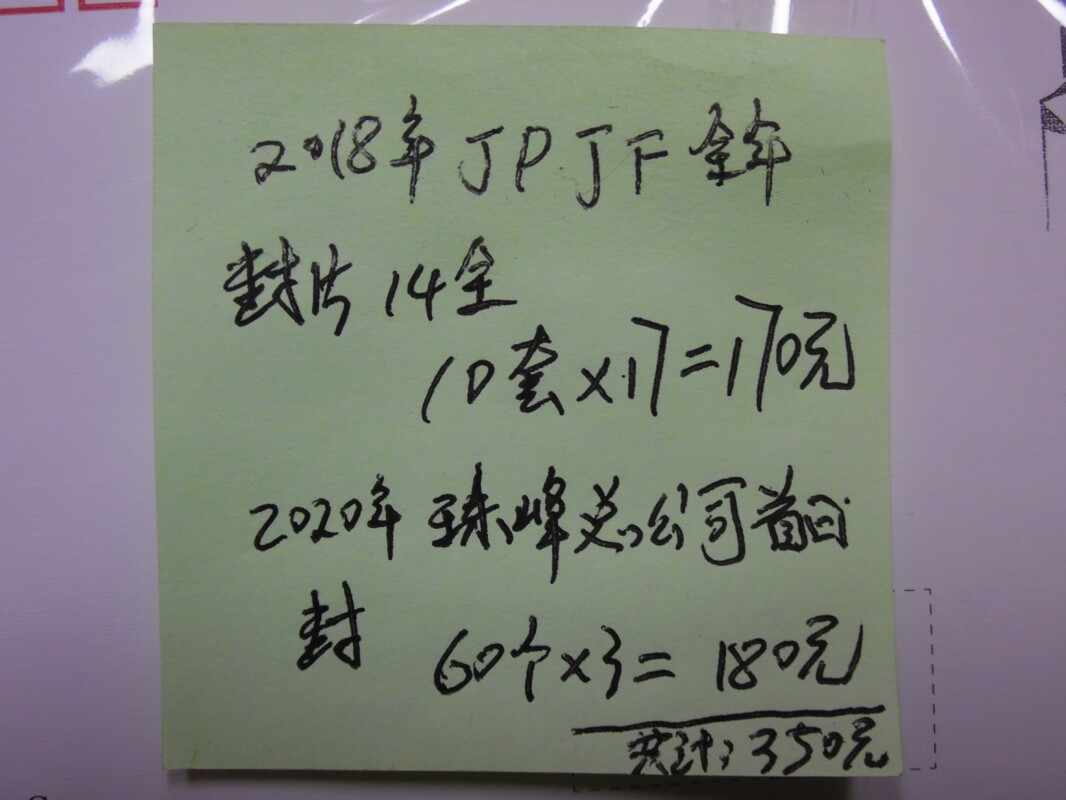 2018年JPJF全年
封片14全
10套×17=170元
2020年 珠峰总公司首日
封 60个×3=180元
共计:350元